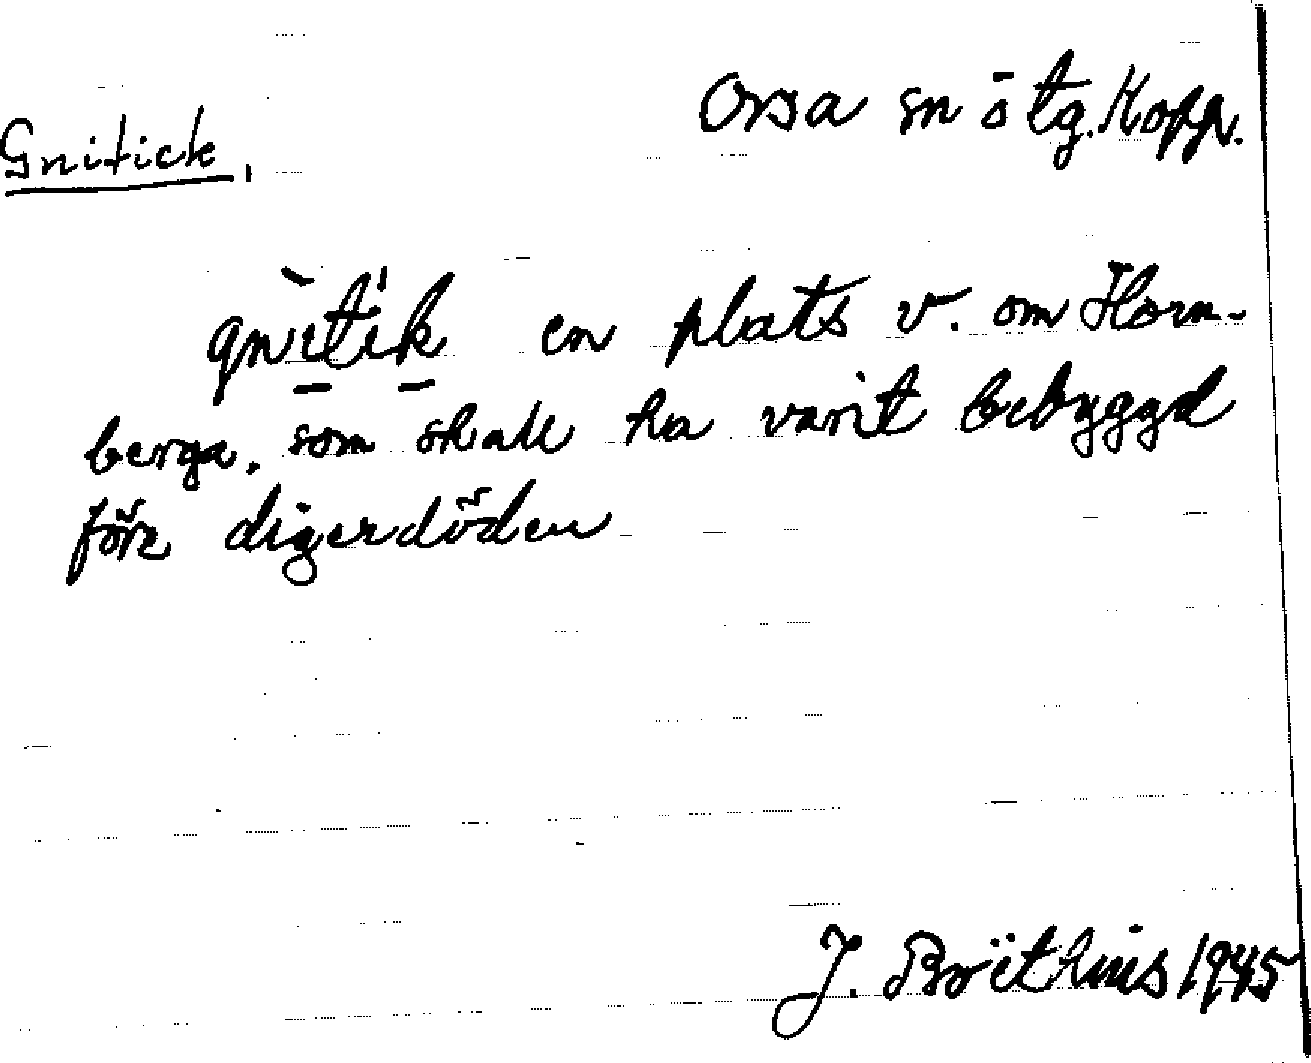 Orsa sn ötg. Kopp.
Gnitick,
gnitik en plats v. om Horn-
berga, som skall ha varit bebyggd
före digerdöden
J. Boëthius 1945